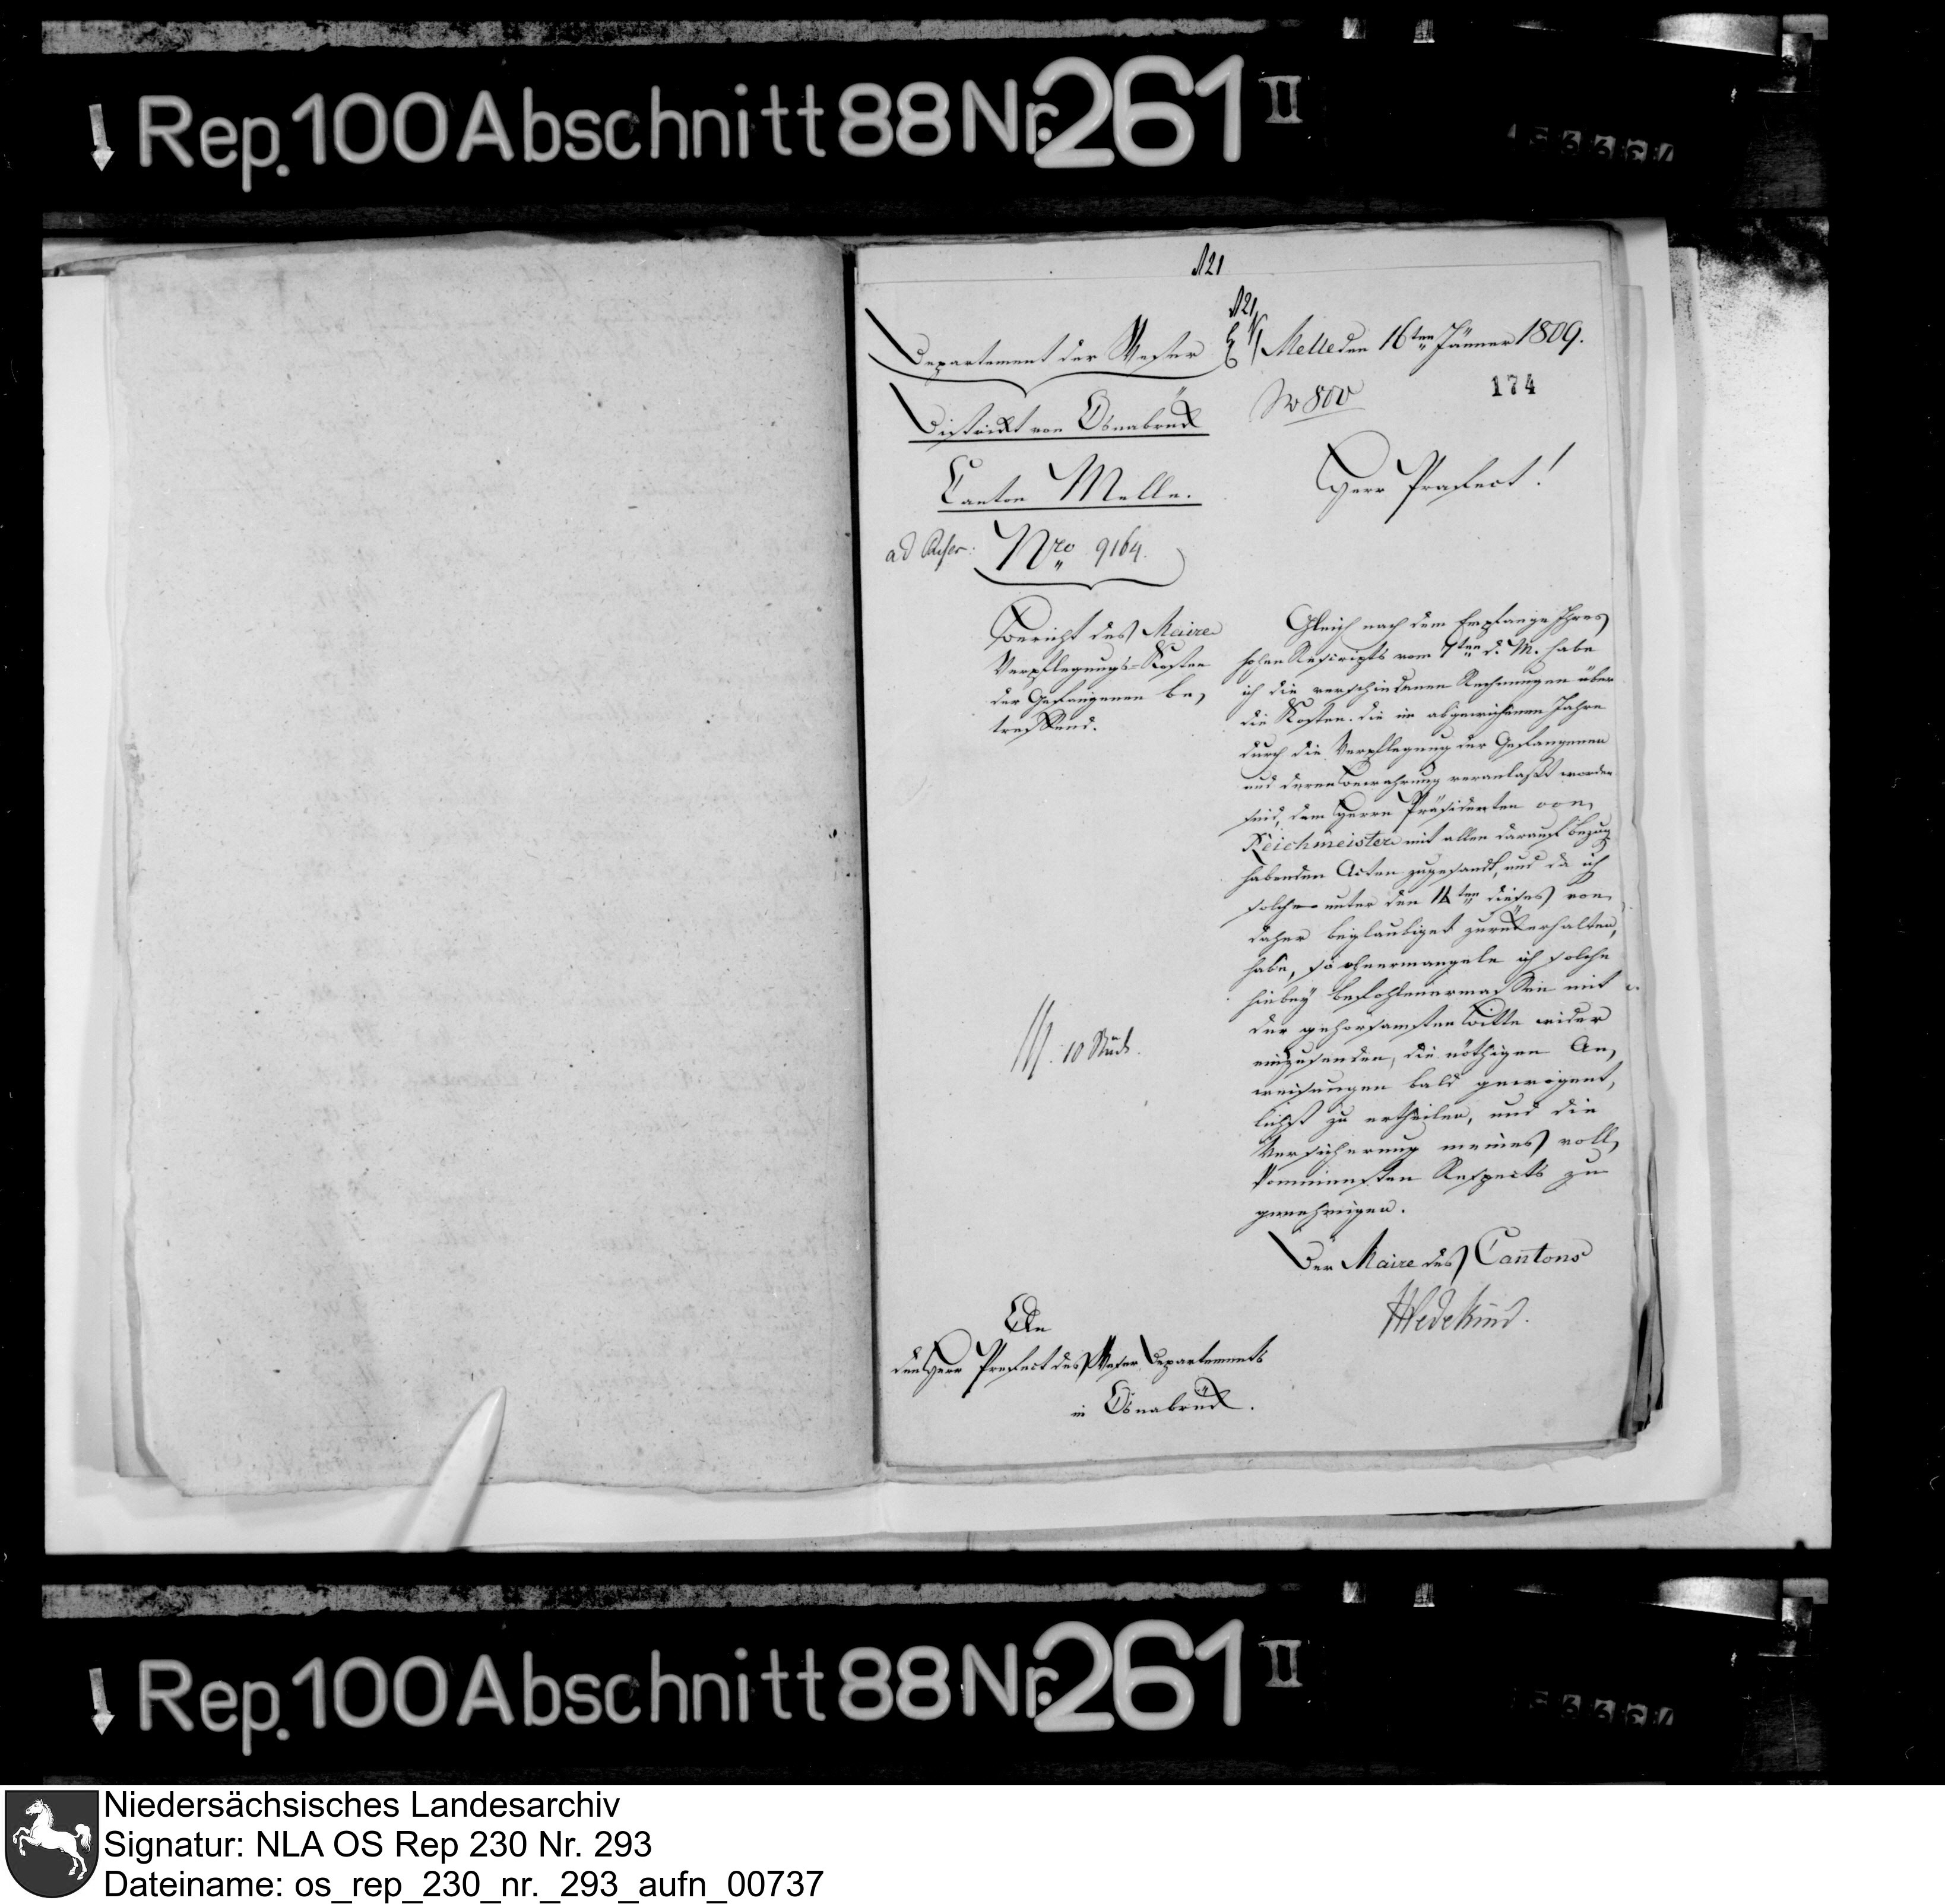 Rep. 100 Abschnitt 88 Nr. 261 II
121
121
Departement der Weser
Melle den 16ten Jänner 1809.
174
District von Osnabrück
Canton Melle.
Herr Praefect!
Nro 9164.
Bericht des Maire
Verpflegungs-Kosten
der Gefangenen be,
treffend.
Gleich nach dem Empfange Ihres
hohen Rescripts vom 7ten d. M. habe
ich die verschiedenen Rechnungen über
die Kosten die im abgewichenen Jahre
durch die Verpflegung der Gefangenen
und deren Bewahrung veranlaßt worden
sind, dem Herrn Präsidenten von
Reichmeister mit allen darauf bezug
habenden Acten zugesandt, und da ich
solche unter den 14ten dieses von
daher beglaubiget zurückerhalten
habe, so ohnermangele ich solche
hiebey befohlenermassen mit
der gehorsamsten Bitte wider
einzusenden, die nöthigen An,
weisungen bald geneigent,
lichst zu ertheilen, und die
Versicherung meines voll,
kommensten Respects zu
genehmigen.
10 Stück.
Der Maire des Cantons
Wedekind.
An
den Herr Prefect des Weser Departements
in Osnabrück.
Rep. 100 Abschnitt 88 Nr. 261 II
Niedersächsisches Landesarchiv
Signatur: NLA OS Rep 230 Nr. 293
Dateiname: os_rep_230_nr._293_aufn_00737